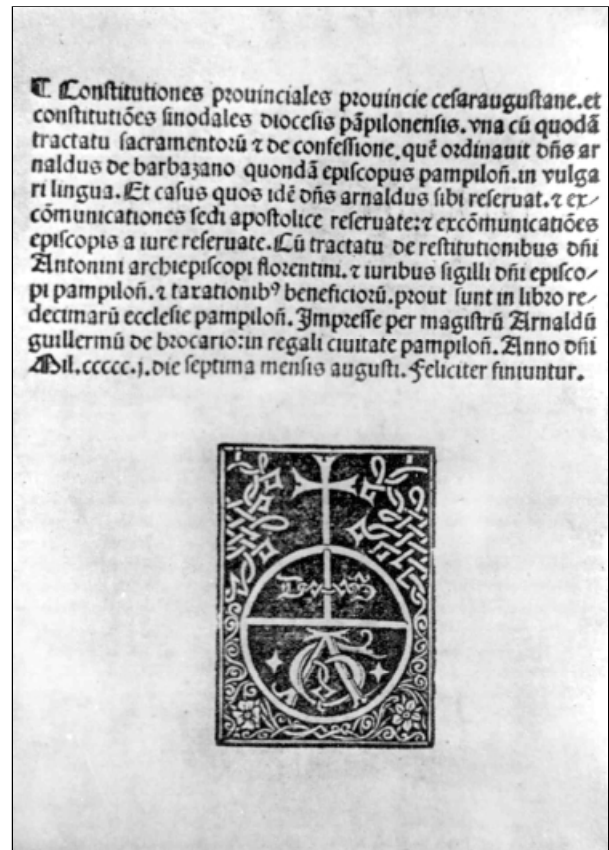 ¶ Constitutiones prouinciales prouincie cesaraugustane.et
constitutiões sinodales diocesis pãpilonensis. vna cũ quodã
tractatu sacramentorũ ⁊ de confessione, quẽ ordinauit dñs ar
naldus de barbazano quondã episcopus pampiloñ. in vulga
ri lingua. Et casus quos idẽ dñs arnaldus sibi reseruat. ⁊ ex⸗
cõmunicationes sedi apostolice reseruate: ⁊ excõmunicatiões
episcopis a iure reseruate. Cũ tractatu de restitutionibus dñi
Antonini archiepiscopi florentini. ⁊ iuribus sigilli dñi episco⸗
pi pampiloñ. ⁊ taxationibꝰ beneficiorũ. prout sunt in libro re⸗
decimarũ ecclesie pampiloñ. Impresse per magistrũ Arnaldũ
guillermũ de brocario: in regali ciuitate pampiloñ. Anno dñi
Mil.ccccc.j. die septima mensis augusti. Feliciter finiuntur.